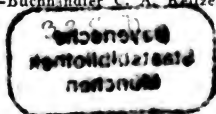 -Buchhändler C. A.
Bayerische
Staatsbibliothek
München